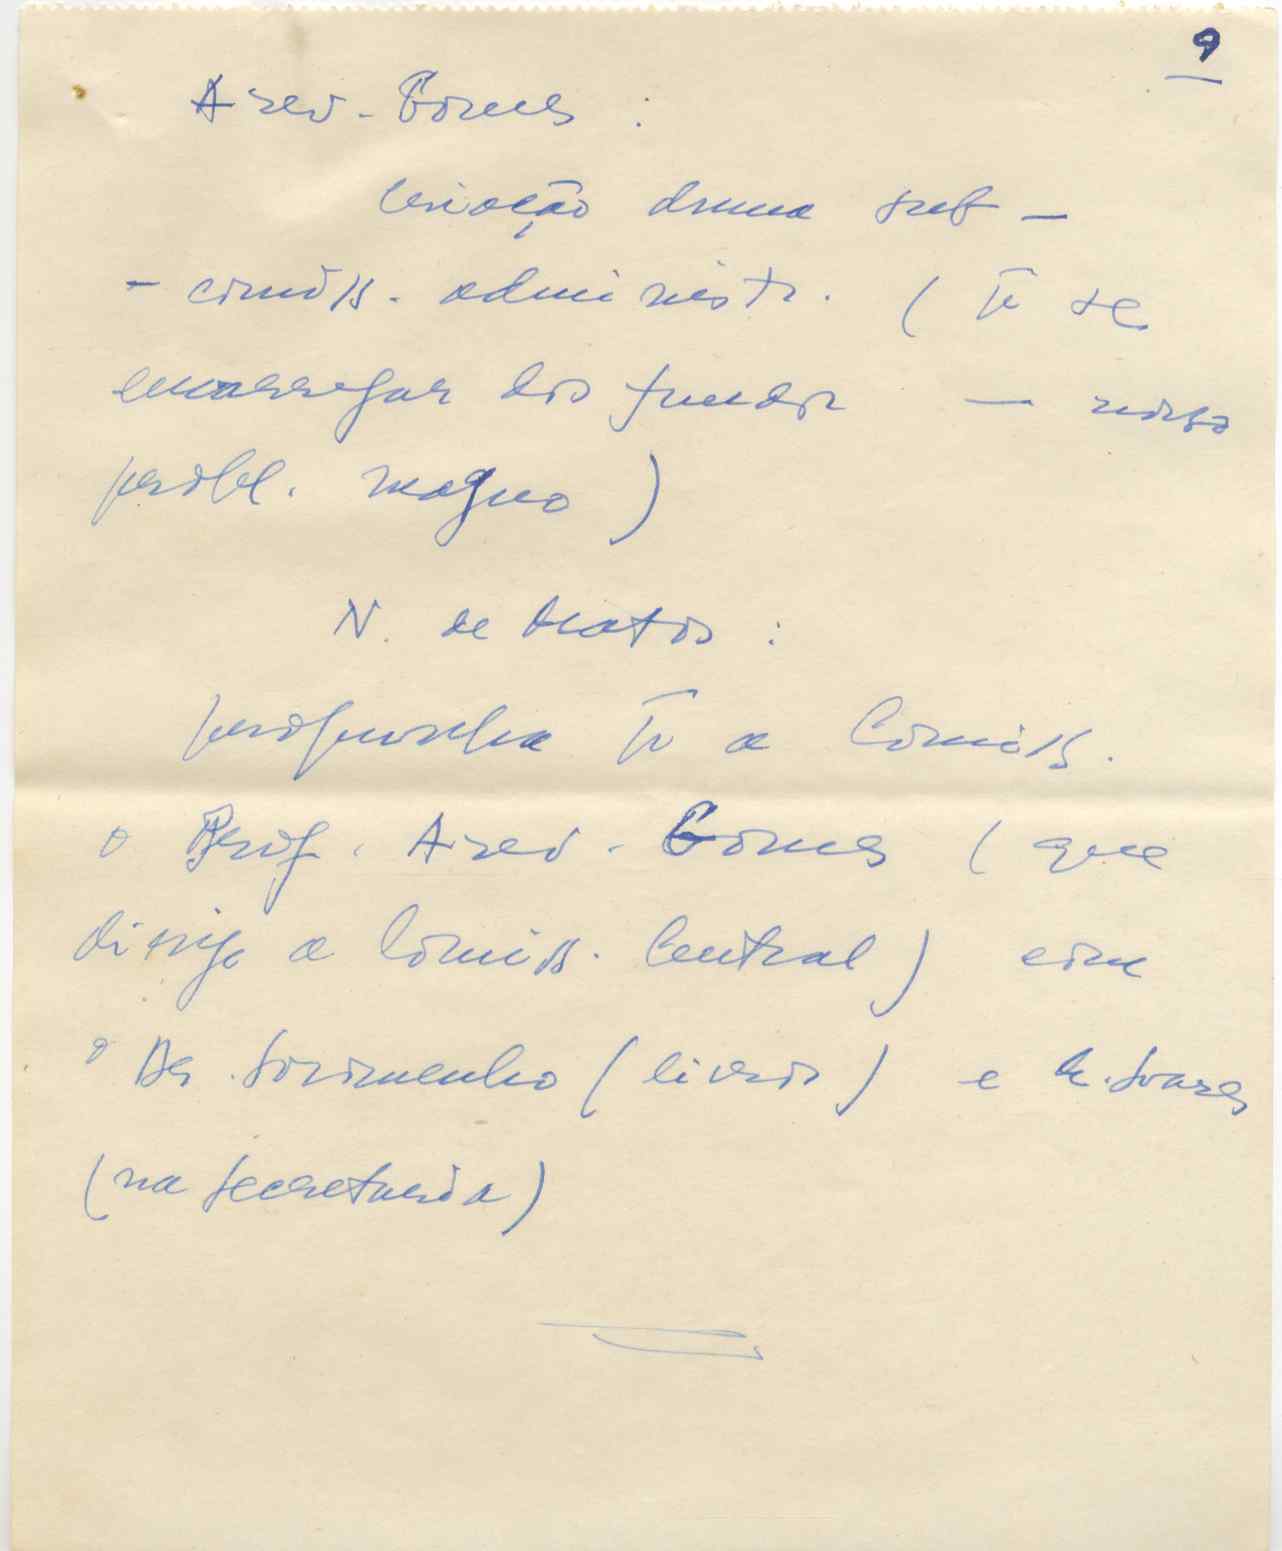 9
Azev. Gomes :
Criação duma sub-
- comiss. administr. ( p̄ se
encarregar dos fundos — nosso
probl. magno )
N. de Matos :
proponha p̄ a Comiss.
o Prof. Azev. Gomes ( que
dirige a Comiss. Central ) com
o Dr. Soromenho ( livros ) e M. Soares
(na secretaria)